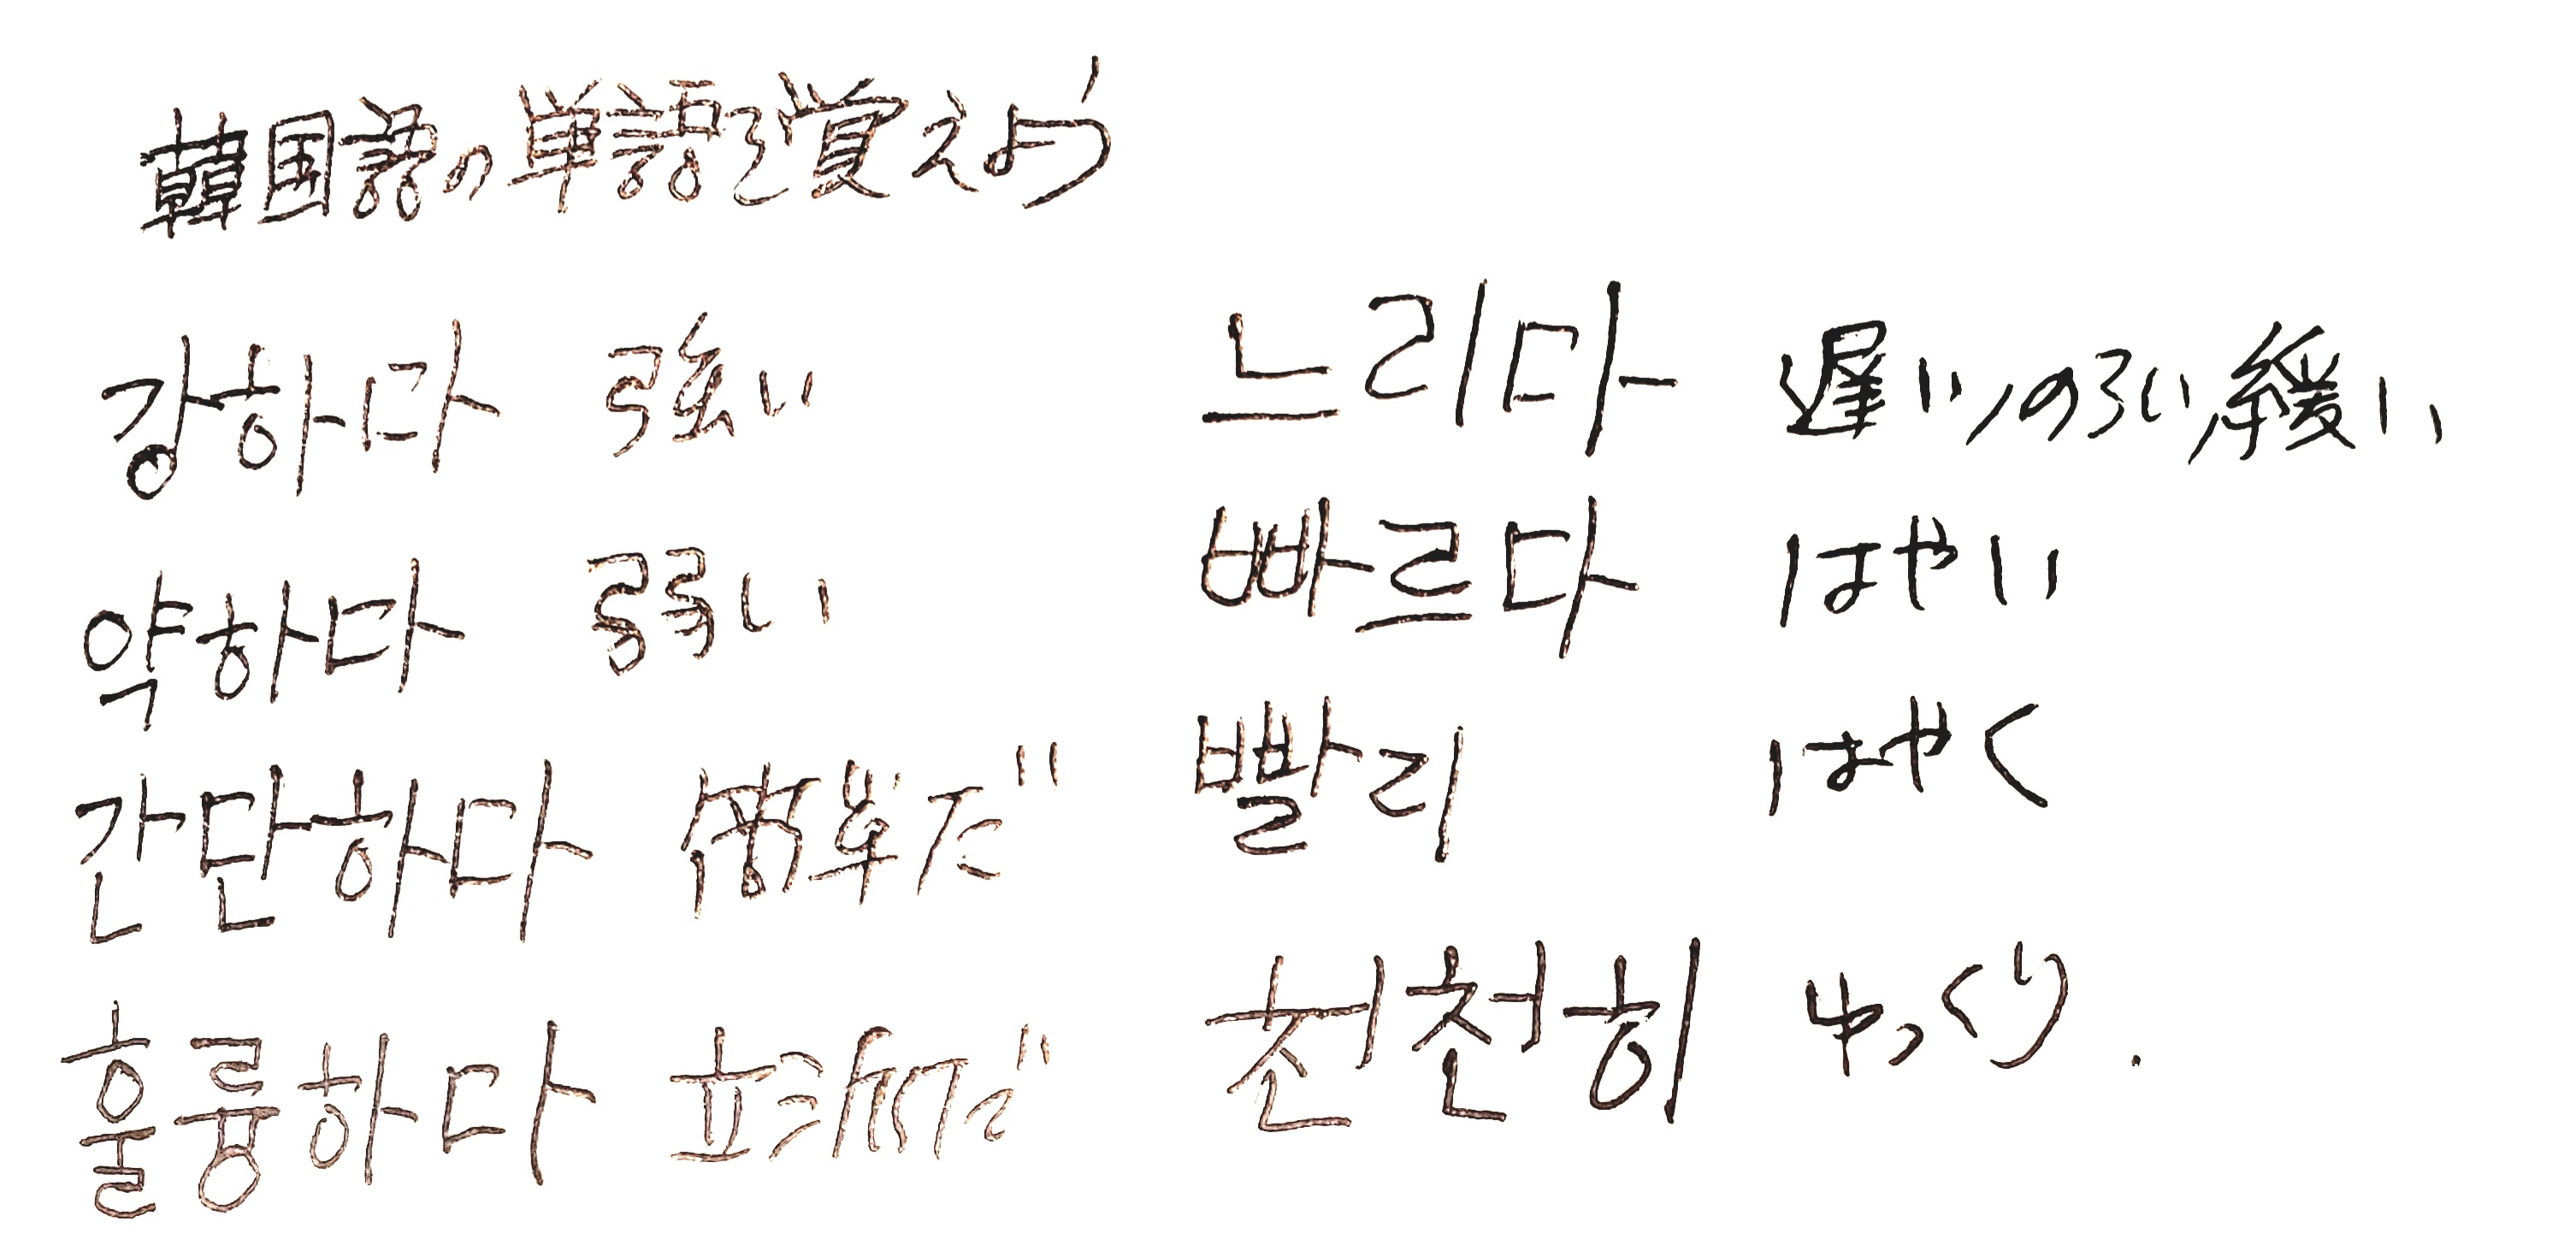 韓国語の単語を覚えよう
강하다 強い
약하다 弱い
간단하다 簡単だ
훌륭하다 立派だ
느리다 遅い、のろい、緩い
빠르다 はやい
빨리 はやく
천천히 ゆっくり.